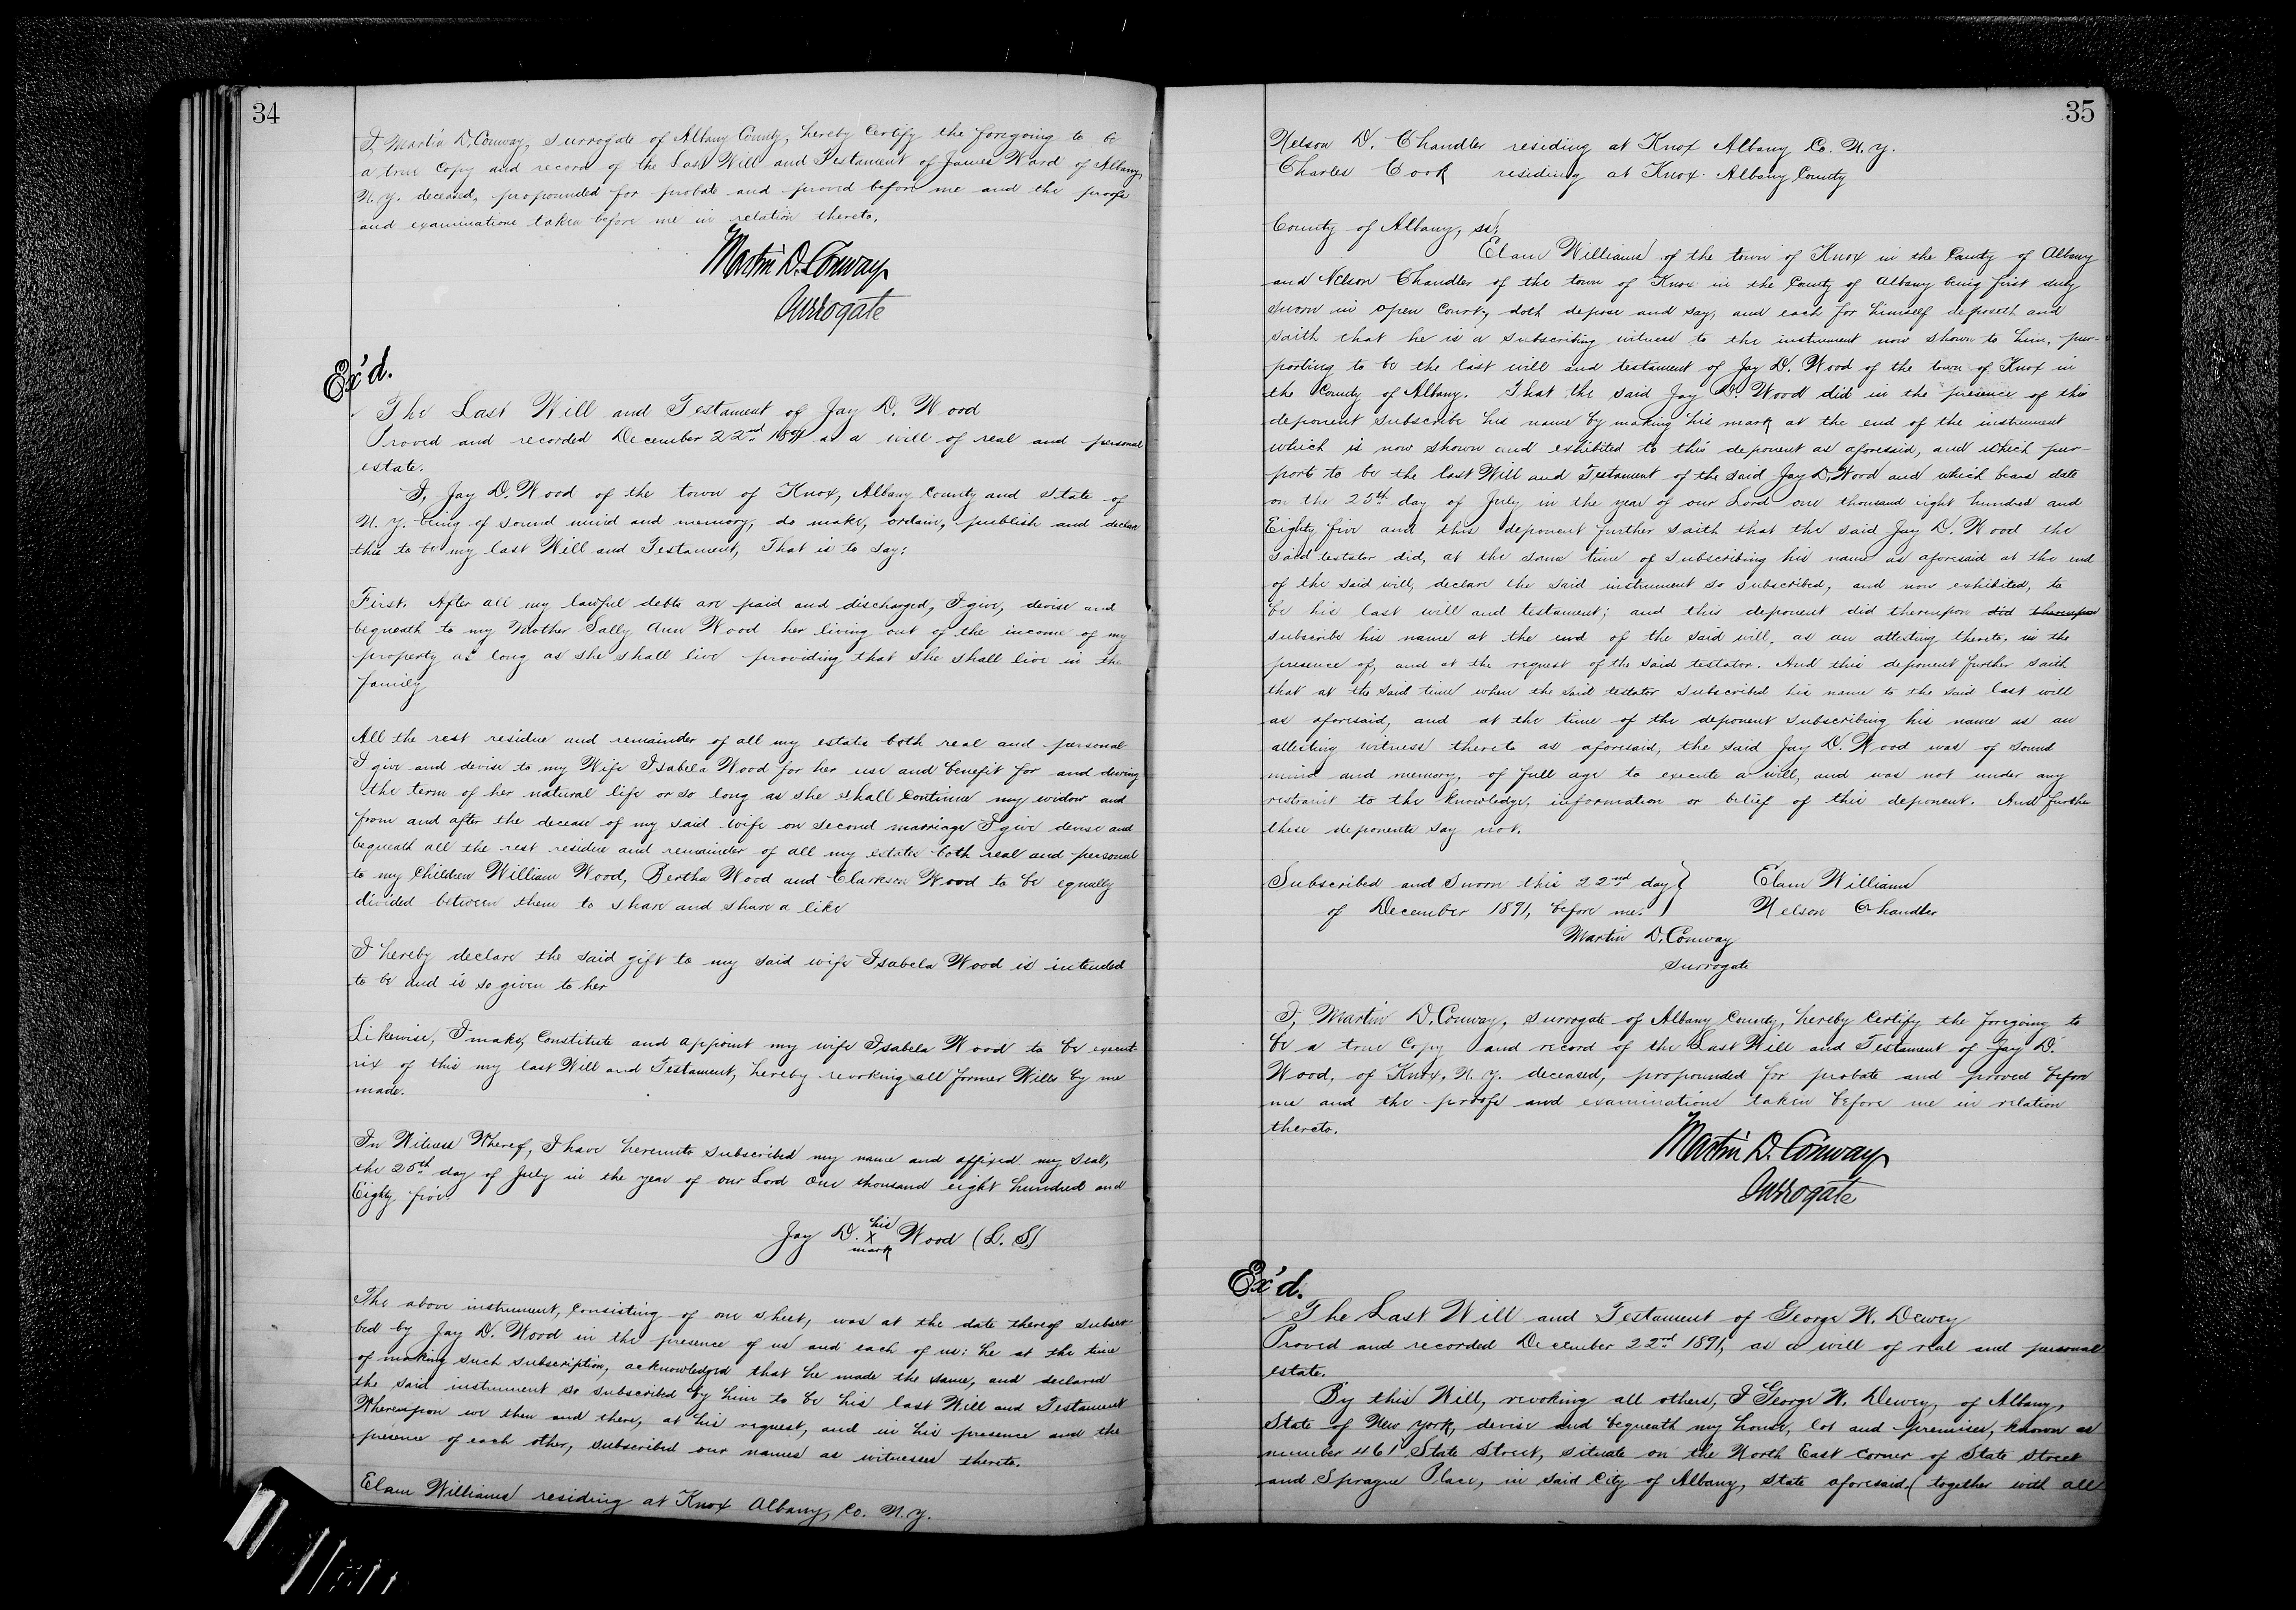 34
I, Martin D. Conway, Surrogate of Albany County, hereby Certify the foregoing to be
a true Copy and record of the Last Will and Testament of James Ward of Albany,
N. Y. deceased, propounded for probate and proved before me and the proofs
and examinations taken before me in relation thereto.
Martin D. Conway
Surrogate
Ex'd.
The Last Will and Testament of Jay D. Wood
Proved and recorded December 22nd 1891 as a will of real and personal
estate.
I, Jay D. Wood of the town of Knox, Albany County and State of
N. Y. being of sound mind and memory, do make, ordain, publish and declare
this to be my last Will and Testament, That is to say:
First. After all my lawful debts are paid and discharged, I give, devise and
bequeath to my Mother Sally Ann Wood her living out of the income of my
property as long as she shall live providing that she shall live in the
family
All the rest residue and remainder of all my estate both real and personal
I give and devise to my Wife Isabela Wood for her use and benefit for and during
the term of her natural life or so long as she shall continue my widow and
from and after the decease of my said wife or second marriage I give devise and
bequeath all the rest residue and remainder of all my estate both real and personal
to my Children William Wood, Bertha Wood and Clarkson Wood to be equally
divided between them to share and share a like
I hereby declare the said gift to my said wife Isabela Wood is intended
to be and is so given to her
Likewise, I make, Constitute and appoint my wife Isabela Wood to be execut-
rix of this my last Will and Testament, hereby revoking all former Wills by me
made.
In Witness Whereof, I have hereunto subscribed my name and affixed my seal,
the 25th day of July in the year of our Lord One thousand eight hundred and
Eighty five
Jay D. his X mark Wood (L. S)
The above instrument, Consisting of one sheet, was at the date thereof subscri-
bed by Jay D. Wood in the presence of us and each of us: he at the time
of making such subscription, acknowledged that he made the same, and declared
the said instrument so subscribed by him to be his last Will and Testament
Whereupon we then and there, at his request, and in his presence and the
presence of each other, subscribed our names as witnesses thereto.
Elam Williams residing at Knox Albany, Co. N. Y.
35
Nelson D. Chandler residing at Knox Albany Co. N. Y.
Charles Cook residing at Knox. Albany County
County of Albany, ss:
Elam Williams of the town of Knox in the County of Albany
and Nelson Chandler of the town of Knox in the County of Albany being first duly
sworn in open Court, doth depose and say, and each for himself deposeth and
saith that he is a subscribing witness to the instrument now shown to him, pur-
porting to be the last will and testament of Jay D. Wood of the town of Knox in
the County of Albany. That the said Jay D. Wood did in the presence of this
deponent subscribe his name by making his mark at the end of the instrument
which is now shown and exhibited to this deponent as aforesaid, and which pur-
ports to be the last Will and Testament of the said Jay D. Wood and which bears date
on the 25th day of July in the year of our Lord one thousand eight hundred and
Eighty five and this deponent further saith that the said Jay D. Wood the
said testator did, at the same time of subscribing his name as aforesaid at the end
of the said will, declare the said instrument so subscribed, and now exhibited, to
be his last will and testament; and this deponent did thereupon did thereupon
subscribe his name at the end of the said will, as an attesting thereto, in the
presence of, and at the request of the said testator. And this deponent further saith
that at the said time when the said testator subscribed his name to the said last will
as aforesaid, and at the time of the deponent subscribing his name as an
attesting witness thereto as aforesaid, the said Jay D. Wood was of sound
mind and memory, of full age to execute a will, and was not under any
restraint to the knowledge, information or belief of this deponent. And further
these deponents say not.
Subscribed and Sworn this 22nd day } Elam Williams
of December 1891, before me. } Nelson Chandler
Martin D. Conway
Surrogate
I, Martin D. Conway, Surrogate of Albany County, hereby Certify the foregoing to
be a true Copy and record of the Last Will and Testament of Jay D.
Wood, of Knox, N. Y. deceased, propounded for probate and proved before
me and the proofs and examinations taken before me in relation
thereto.
Martin D. Conway
Surrogate
Ex'd.
The Last Will and Testament of George W. Dewey
Proved and recorded December 22nd 1891, as a will of real and personal
estate.
By this Will, revoking all others, I George W. Dewey, of Albany,
State of New York, devise and bequeath my house, lot and premises, known as
number 461 State Street, situate on the North East Corner of State Street
and Sprague Place, in said City of Albany, State aforesaid, (together with all